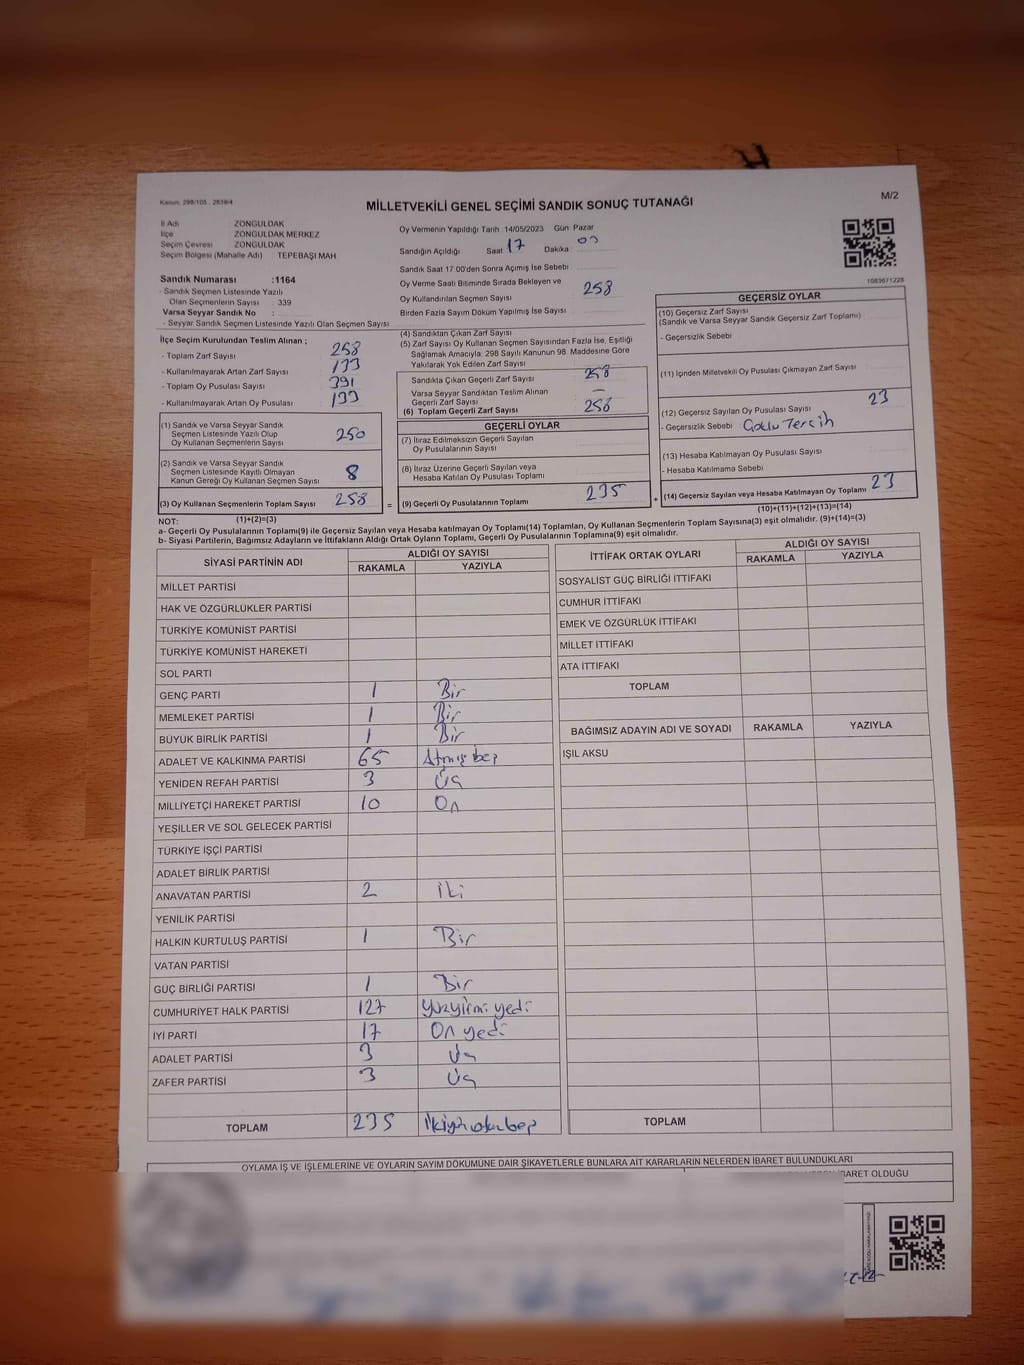 Kanun: 298/105 , 2839/4
MİLLETVEKİLİ GENEL SEÇİMİ SANDIK SONUÇ TUTANAĞI
M/2
İl Adı ZONGULDAK
İlçe ZONGULDAK MERKEZ
Seçim Çevresi ZONGULDAK
Seçim Bölgesi (Mahalle Adı) TEPEBAŞI MAH
Sandık Numarası :1164
- Sandık Seçmen Listesinde Yazılı
Olan Seçmenlerin Sayısı : 339
Varsa Seyyar Sandık No :
- Seyyar Sandık Seçmen Listesinde Yazılı Olan Seçmen Sayısı
Oy Vermenin Yapıldığı Tarih :14/05/2023 Gün: Pazar
Sandığın Açıldığı Saat: 17 Dakika: 00
Sandık Saat 17:00'den Sonra Açımış İse Sebebi :
Oy Verme Saati Bitiminde Sırada Bekleyen ve
Oy Kullandırılan Seçmen Sayısı : 258
Birden Fazla Sayım Döküm Yapılmış İse Sayısı
1083671228
İlçe Seçim Kurulundan Teslim Alınan ;
- Toplam Zarf Sayısı : 258
- Kullanılmayarak Artan Zarf Sayısı : 133
- Toplam Oy Pusulası Sayısı : 391
- Kullanılmayarak Artan Oy Pusulası : 133
(1) Sandık ve Varsa Seyyar Sandık
Seçmen Listesinde Yazılı Olup
Oy Kullanan Seçmenlerin Sayısı 250
(2) Sandık ve Varsa Seyyar Sandık
Seçmen Listesinde Kayıtlı Olmayan
Kanun Gereği Oy Kullanan Seçmen Sayısı 8
(3) Oy Kullanan Seçmenlerin Toplam Sayısı 258
(1)+(2)=(3)
=
(4) Sandıktan Çıkan Zarf Sayısı
(5) Zarf Sayısı Oy Kullanan Seçmen Sayısından Fazla İse, Eşitliği
Sağlamak Amacıyla; 298 Sayılı Kanunun 98. Maddesine Göre
Yakılarak Yok Edilen Zarf Sayısı
Sandıkta Çıkan Geçerli Zarf Sayısı 258
Varsa Seyyar Sandıktan Teslim Alınan
Geçerli Zarf Sayısı –
(6) Toplam Geçerli Zarf Sayısı 258
GEÇERLİ OYLAR
(7) İtiraz Edilmeksizin Geçerli Sayılan
Oy Pusulalarının Sayısı
(8) İtiraz Üzerine Geçerli Sayılan veya
Hesaba Katılan Oy Pusulası Toplamı
(9) Geçerli Oy Pusulalarının Toplamı 235
+
GEÇERSİZ OYLAR
(10) Geçersiz Zarf Sayısı
(Sandık ve Varsa Seyyar Sandık Geçersiz Zarf Toplamı)
- Geçersizlik Sebebi
(11) İçinden Milletvekili Oy Pusulası Çıkmayan Zarf Sayısı
(12) Geçersiz Sayılan Oy Pusulası Sayısı 23
- Geçersizlik Sebebi : Çoklu Tercih
(13) Hesaba Katılmayan Oy Pusulası Sayısı
- Hesaba Katılmama Sebebi
(14) Geçersiz Sayılan veya Hesaba Katılmayan Oy Toplamı 23
(10)+(11)+(12)+(13)=(14)
NOT:
a- Geçerli Oy Pusulalarının Toplamı(9) ile Geçersiz Sayılan veya Hesaba katılmayan Oy Toplamı(14) Toplamları, Oy Kullanan Seçmenlerin Toplam Sayısına(3) eşit olmalıdır. (9)+(14)=(3)
b- Siyasi Partilerin, Bağımsız Adayların ve İttifakların Aldığı Ortak Oyların Toplamı, Geçerli Oy Pusulalarının Toplamına(9) eşit olmalıdır.
SİYASİ PARTİNİN ADI ALDIĞI OY SAYISI
RAKAMLA YAZIYLA
MİLLET PARTİSİ
HAK VE ÖZGÜRLÜKLER PARTİSİ
TÜRKİYE KOMÜNİST PARTİSİ
TÜRKİYE KOMÜNİST HAREKETİ
SOL PARTİ
GENÇ PARTİ 1 Bir
MEMLEKET PARTİSİ 1 Bir
BÜYÜK BİRLİK PARTİSİ 1 Bir
ADALET VE KALKINMA PARTİSİ 65 Atmış beş
YENİDEN REFAH PARTİSİ 3 Üç
MİLLİYETÇİ HAREKET PARTİSİ 10 On
YEŞİLLER VE SOL GELECEK PARTİSİ
TÜRKİYE İŞÇİ PARTİSİ
ADALET BİRLİK PARTİSİ
ANAVATAN PARTİSİ 2 İki
YENİLİK PARTİSİ
HALKIN KURTULUŞ PARTİSİ 1 Bir
VATAN PARTİSİ
GÜÇ BİRLİĞİ PARTİSİ 1 Bir
CUMHURİYET HALK PARTİSİ 127 Yüzyirmi yedi
İYİ PARTİ 17 On yedi
ADALET PARTİSİ 3 Üç
ZAFER PARTİSİ 3 Üç
TOPLAM 235 İkiyüzotuzbeş
İTTİFAK ORTAK OYLARI ALDIĞI OY SAYISI
RAKAMLA YAZIYLA
SOSYALİST GÜÇ BİRLİĞİ İTTİFAKI
CUMHUR İTTİFAKI
EMEK VE ÖZGÜRLÜK İTTİFAKI
MİLLET İTTİFAKI
ATA İTTİFAKI
TOPLAM
BAĞIMSIZ ADAYIN ADI VE SOYADI RAKAMLA YAZIYLA
IŞIL AKSU
TOPLAM
OYLAMA İŞ VE İŞLEMLERİNE VE OYLARIN SAYIM DÖKÜMÜNE DAİR ŞİKAYETLERLE BUNLARA AİT KARARLARIN NELERDEN İBARET BULUNDUKLARI
İBARET OLDUĞU